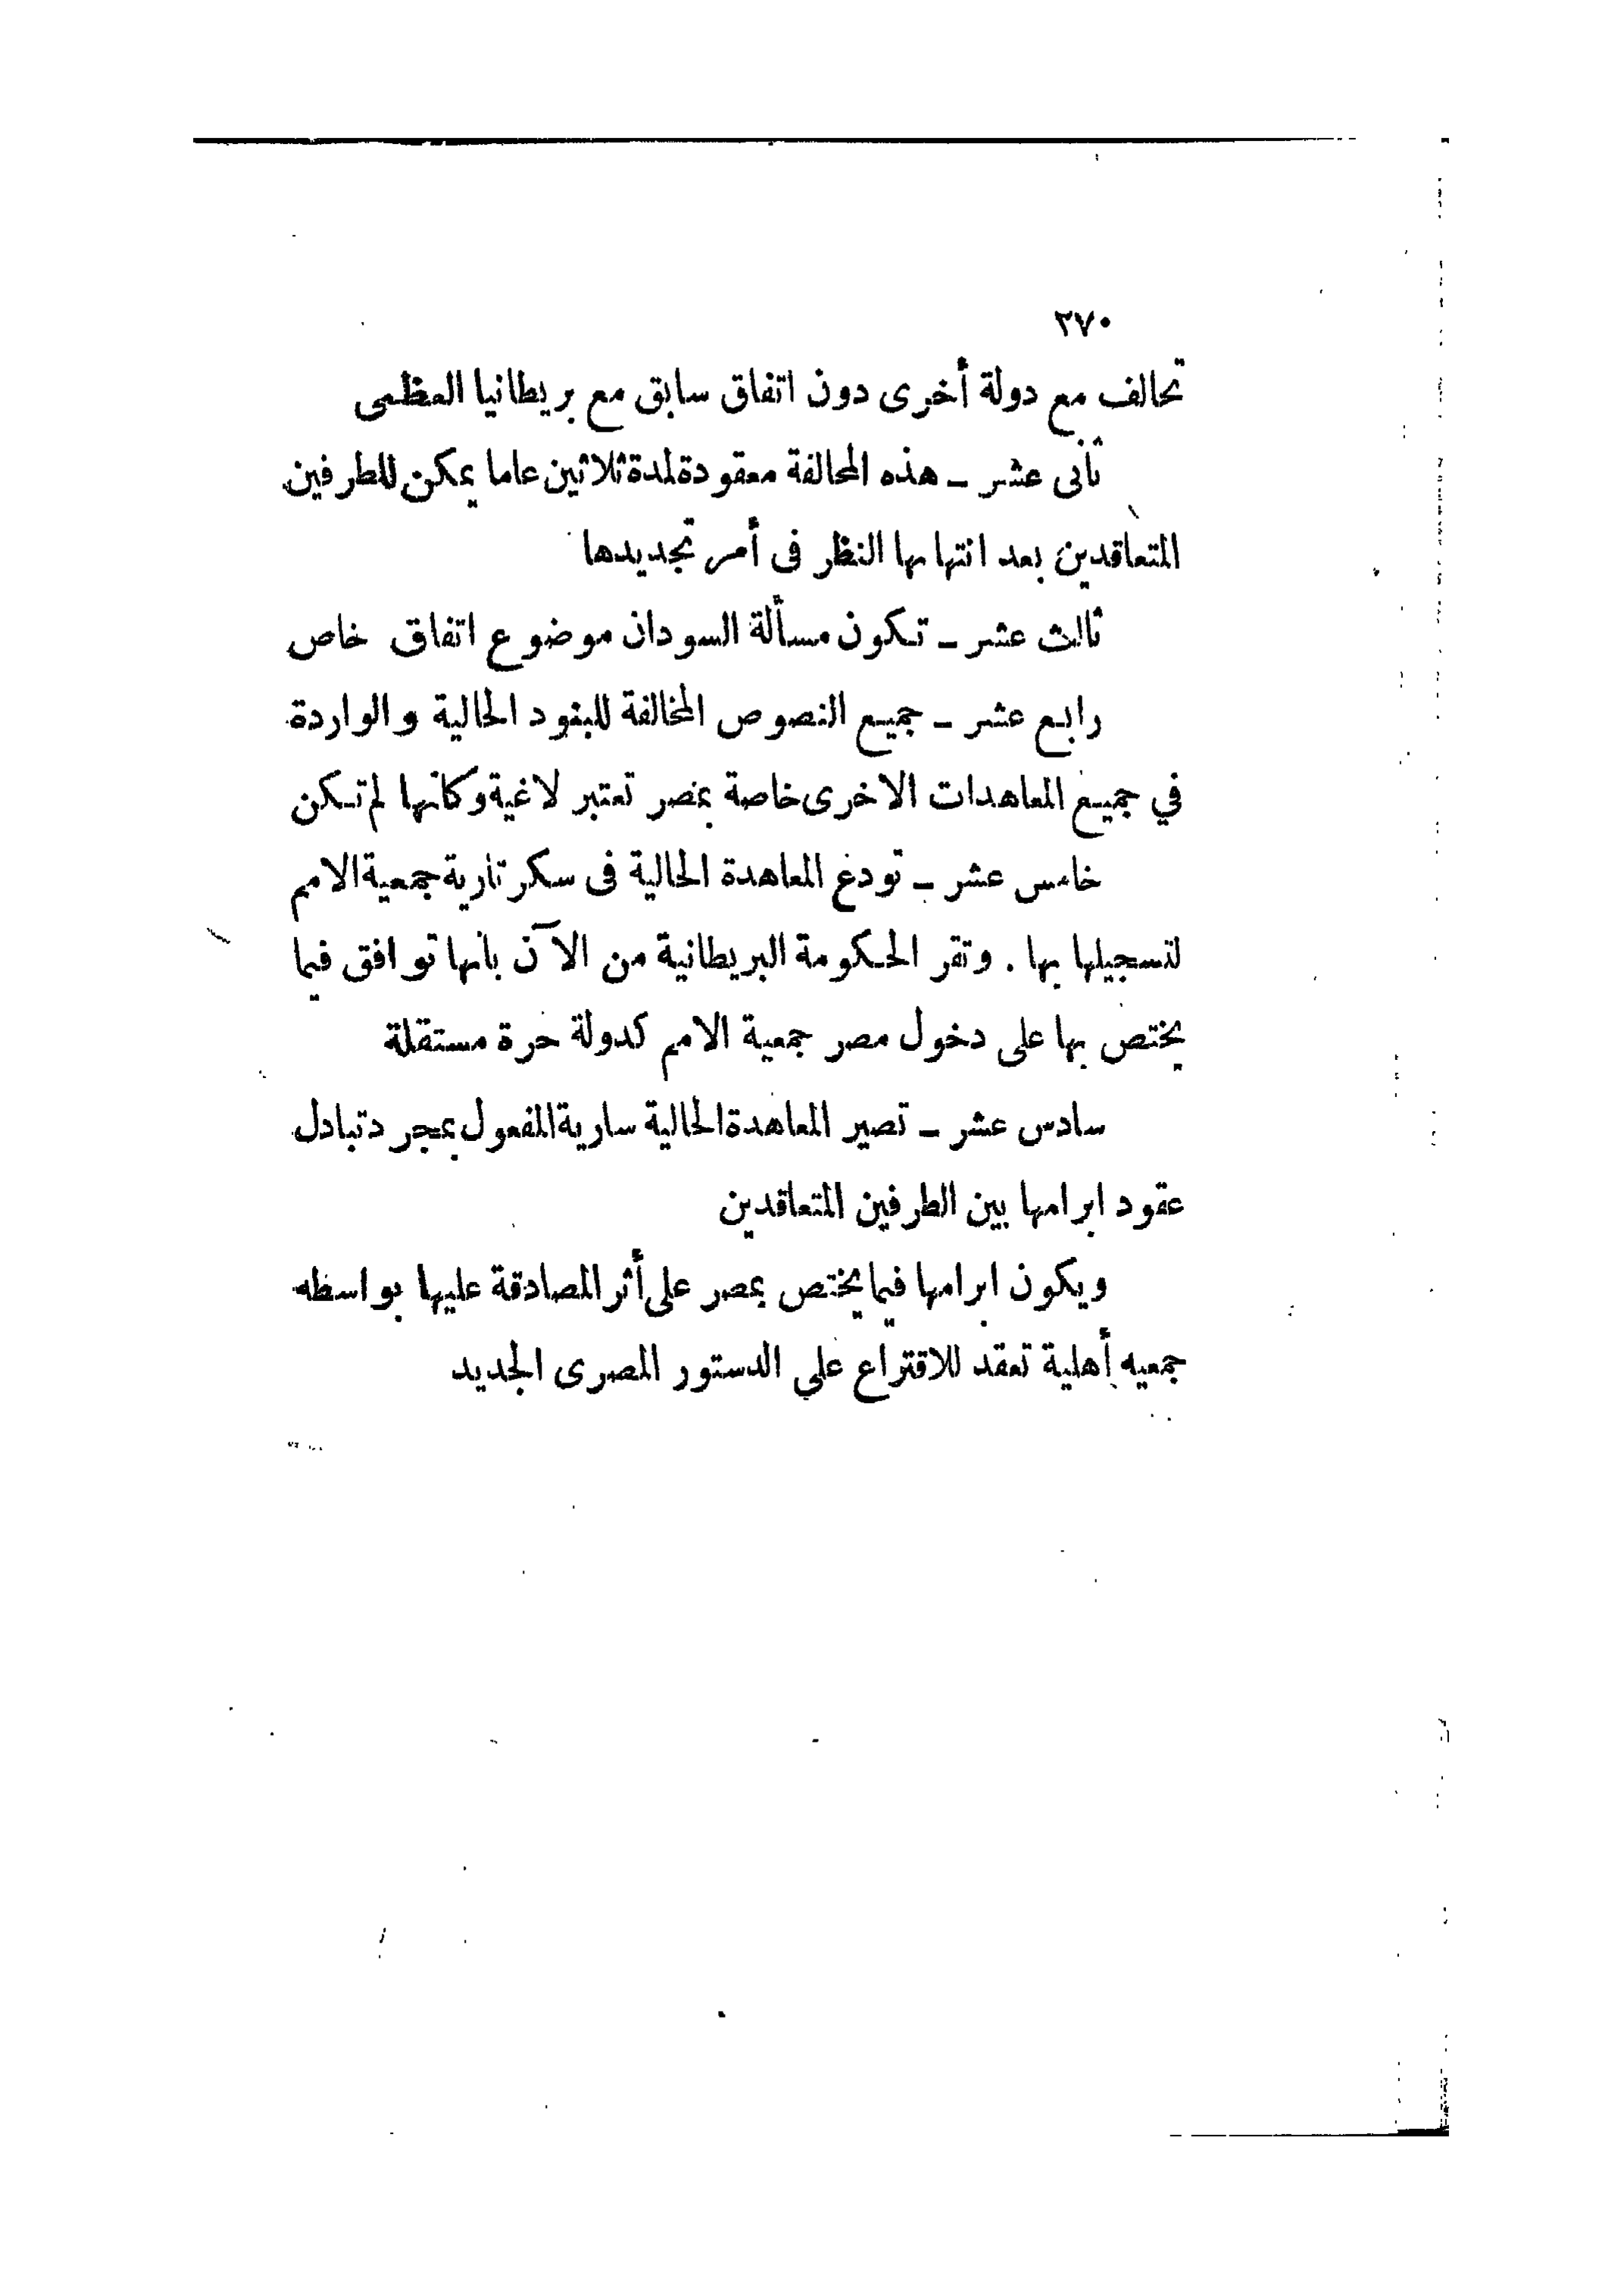 ٢٧٠
تحالف مع دولة أخرى دون اتفاق سابق مع بريطانيا العظمى
ثانى عشر ـ هذه المحالفة معقودة لمدة ثلاثين عاما يمكن للطرفين
المتعاقدين بعد انتهائها النظر فى أمر تجديدها
ثالث عشر ـ تكون مسألة السودان موضوع اتفاق خاص
رابع عشر ـ جميع النصوص المخالفة للبنود الحالية والواردة
في جميع المعاهدات الاخرى خاصة بمصر تعتبر لاغية وكأنها لم تكن
خامس عشر ـ تودع المعاهدة الحالية فى سكرتارية جمعية الامم
لتسجيلها بها . وتقر الحكومة البريطانية من الآن بأنها توافق فيما
يختص بها على دخول مصر جمعية الامم كدولة حرة مستقلة
سادس عشر ـ تصير المعاهدة الحالية سارية المفعول بمجرد تبادل
عقود ابرامها بين الطرفين المتعاقدين
ويكون ابرامها فيما يختص بمصر على أثر المصادقة عليها بواسطه
جمعيه أهلية تعقد للاقتراع علي الدستور المصرى الجديد